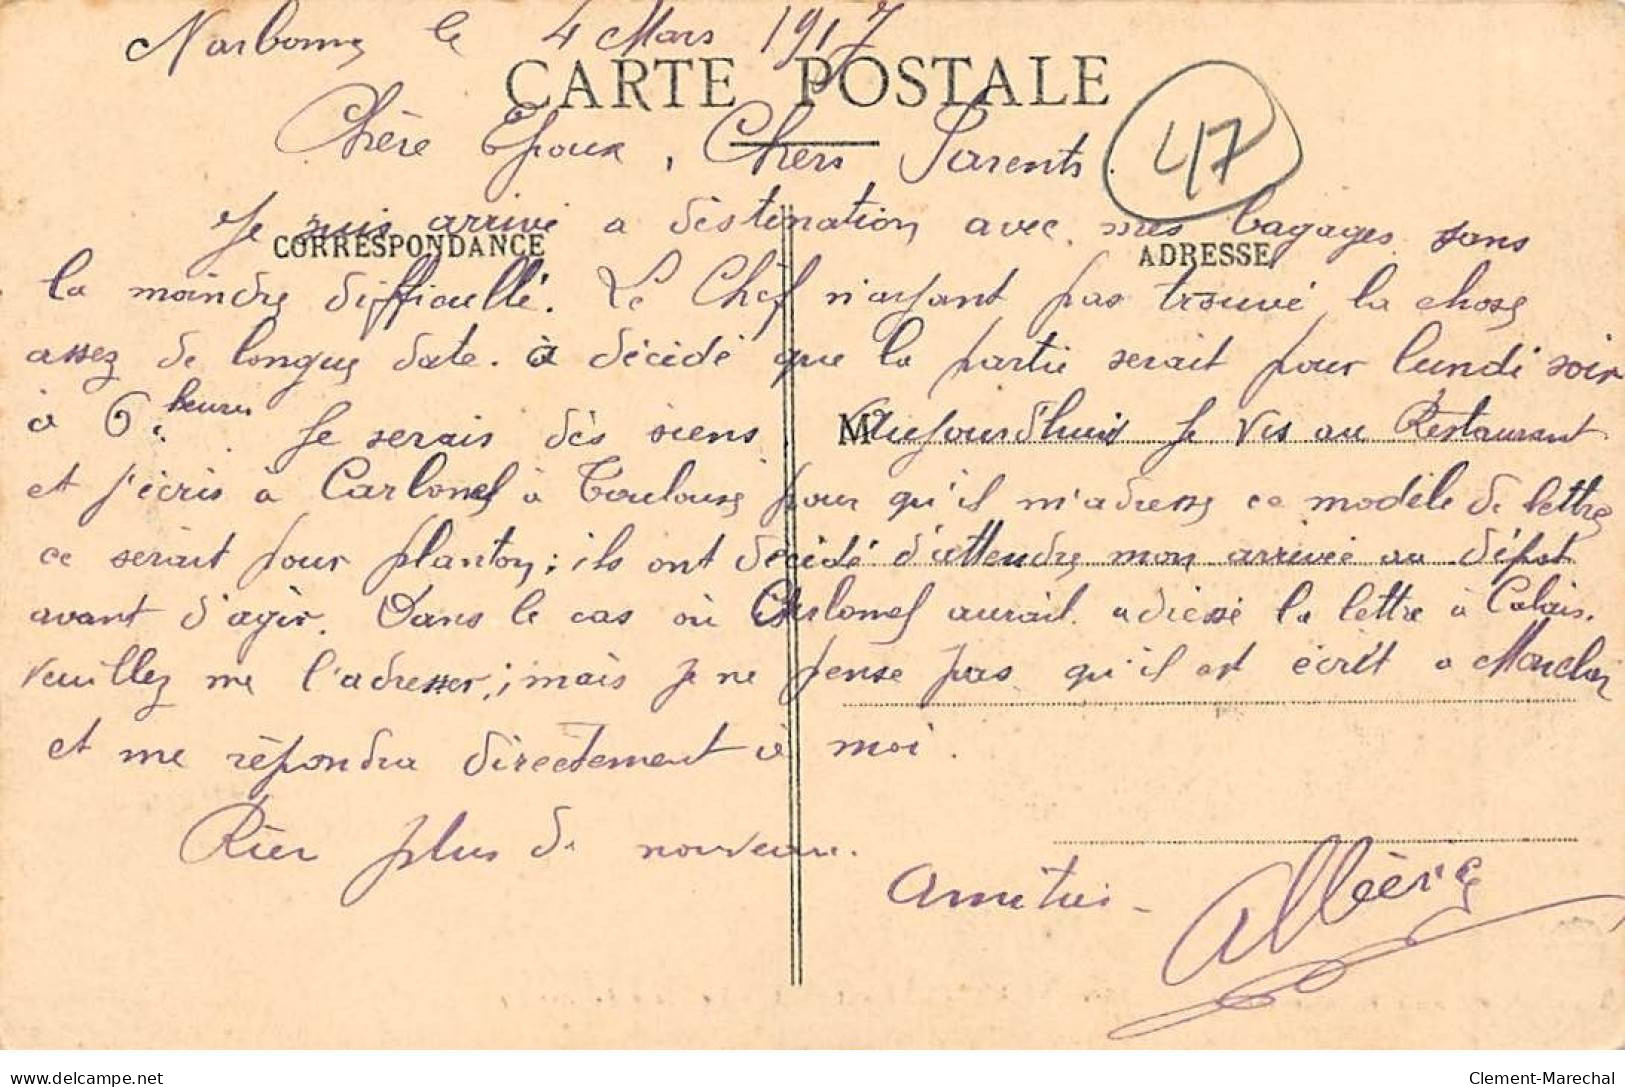 Narbonne le 4 Mars 1917
CARTE POSTALE
47
Chère Epoux, Chers Parents.
Je suis arrivé a déstination avec mes bagages sans
CORRESPONDANCE
ADRESSE
la moindre difficullé. Le Chef n'ayant pas trouvé la chose
assez de longue date. a décidé que la partie serait pour lundi soir
à 6 heures. Je serais dès siens. Aujourd'hui je vis au Restaurant
M
et j'écris à Carlonel à Toulouse pour qu'il m'adresse ce modèle de lettre
ce serait pour planton; ils ont décidé d'attendre mon arrivée au dépot
avant d'agir. Dans le cas où Carlonel aurait adressé la lettre à Calais.
veuillez me l'adresser; mais je ne pense pas qu'il est écrit a Monclar
et me répondra directement à moi.
Rien plus de nouveau.
Amitiés - Albéric
Clement-Marechal
https://www.delcampe.net